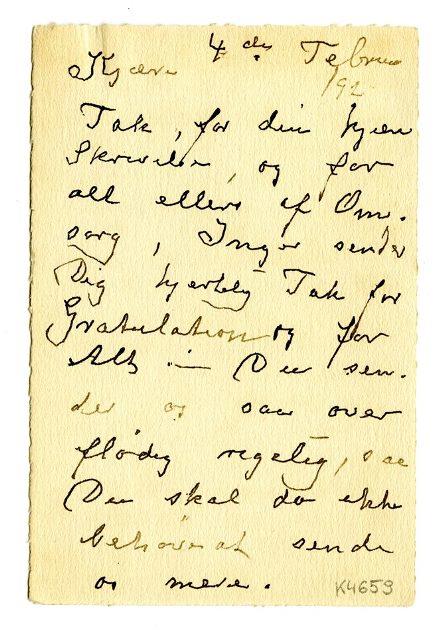 4 de Februar
Kjære 92
Tak, for din kjære
Skrivelse, og for
alt ellers af Om-
sorg, Inger sender
Dig hjertelig Tak for
Gratulation og for
Alt — Du sen-
der os saa over
flødig rigelig, saa
Du skal da ikke
behøve at sende
os mere.
K4659